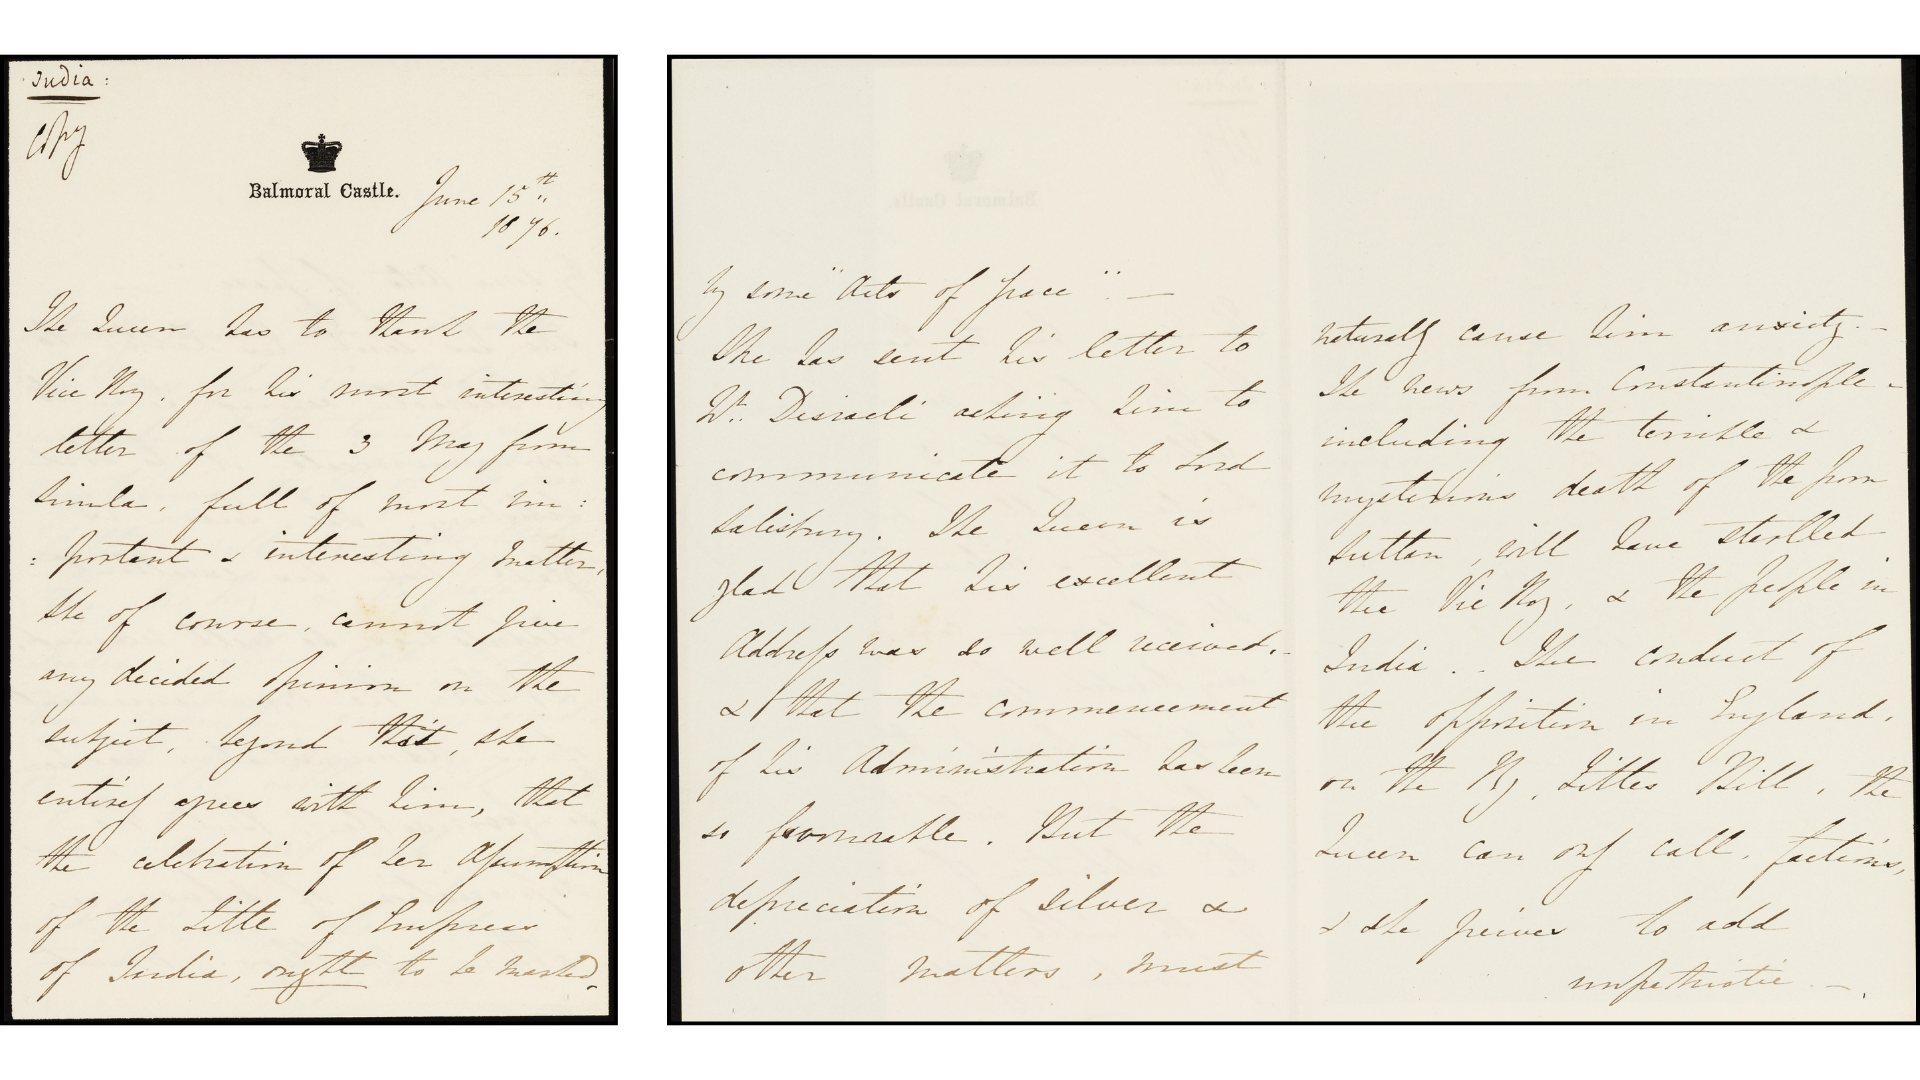 India:
Copy
Balmoral Castle. June 15th
1876.
The Queen has to thank the
Vice Roy, for his most interesting
letter of the 3 May from
Simla, full of most im:
:portant & interesting matter,
She of course, cannot give
any decided opinion on the
subject, beyond this, she
entirely agrees with him, that
the celebration of her Assumption
of the Title of Empress
of India, ought to be marked,
by some "Acts of Grace". —
She has sent his letter to
Mr. Disraeli asking him to
communicate it to Lord
Salisbury. The Queen is
glad that his excellent
Address was so well received. -
& that the commencement
of his Administration has been
so favourable. But the
depreciation of silver &
other matters, must
naturally cause him anxiety. -
The news from Constantinople -
including the terrible &
mysterious death of the poor
Sultan, will have startled
the Vice Roy, & the people in
India. . The conduct of
the opposition in England,
on the Ry. Titles Bill, the
Queen can only call, factious,
& she grieves to add
unpatriotic. —